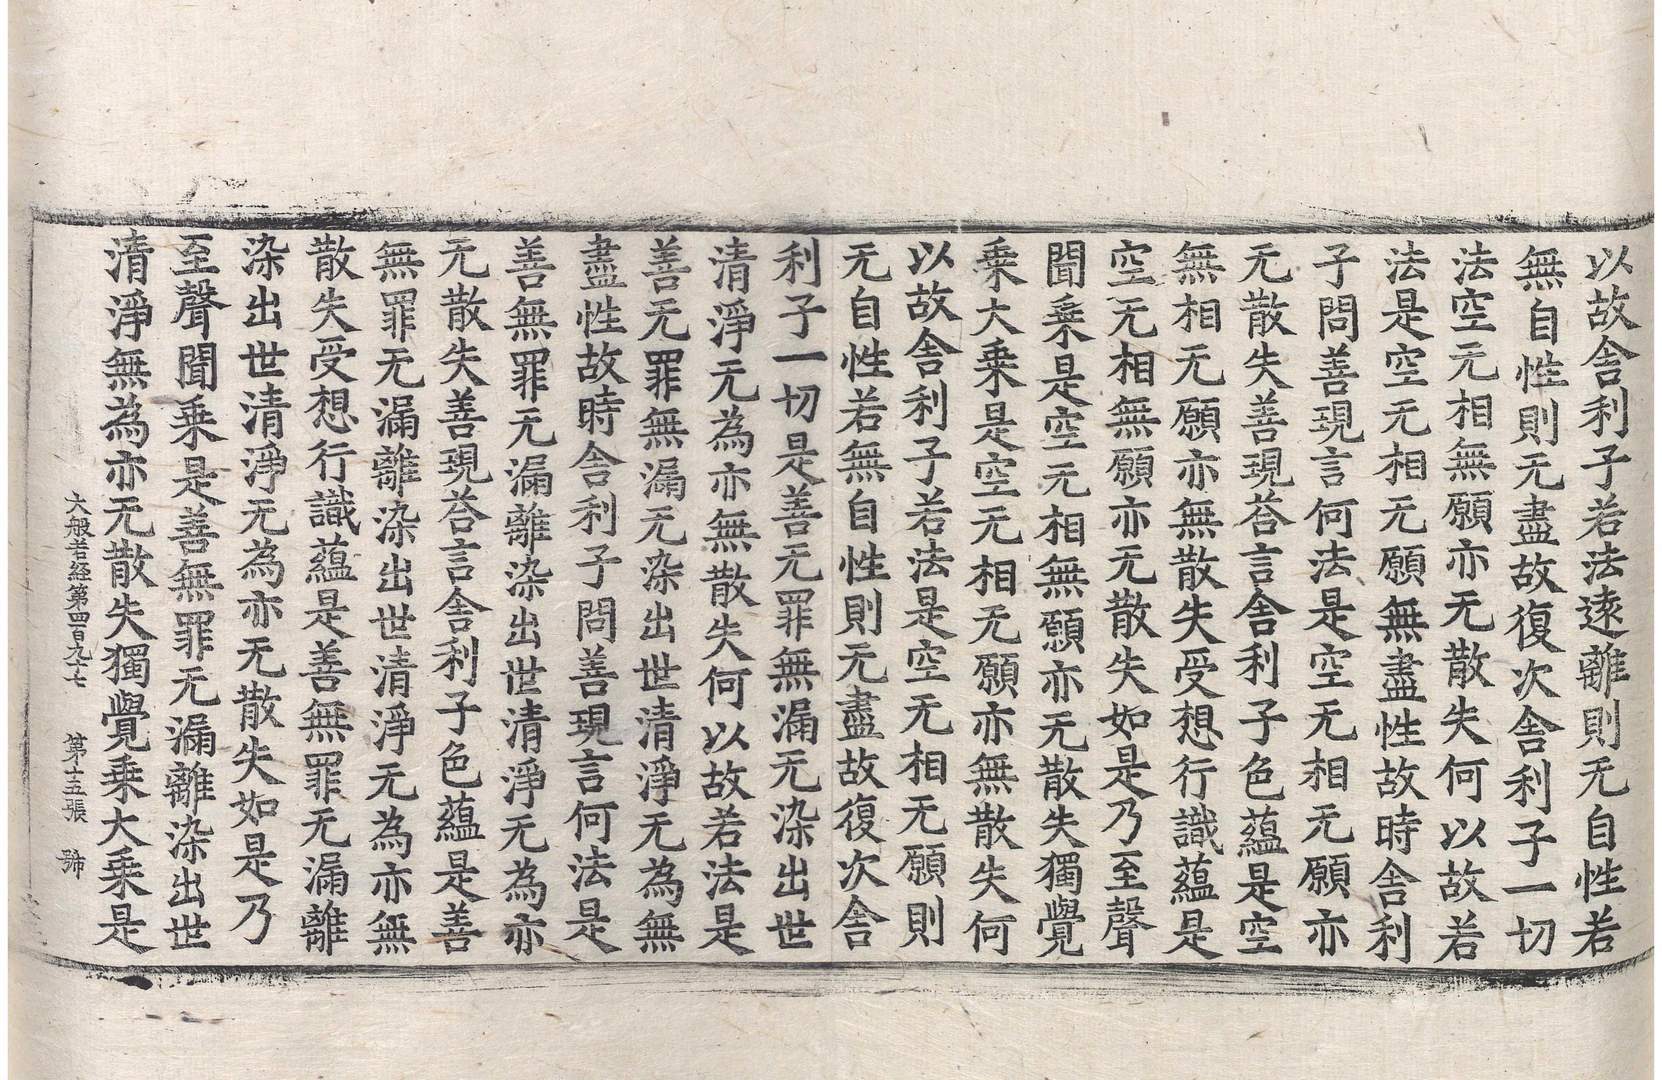 以故舍利子若法遠離則无自性若
無自性則无盡故復次舍利子一切
法空无相無願亦无散失何以故若
法是空无相无願無盡性故時舍利
子問善現言何法是空无相无願亦
无散失善現荅言舍利子色蘊是空
無相无願亦無散失受想行識蘊是
空无相無願亦无散失如是乃至聲
聞乗是空无相無願亦无散失獨覺
乗大乗是空无相无願亦無散失何
以故舍利子若法是空无相无願則
无自性若無自性則无盡故復次舍
利子一切是善无罪無漏无染出世
清淨无為亦無散失何以故若法是
善无罪無漏无染出世清淨无為無
盡性故時舍利子問善現言何法是
善無罪无漏離染出世清淨无為亦
无散失善現荅言舍利子色蘊是善
無罪无漏離染出世清淨无為亦無
散失受想行識蘊是善無罪无漏離
染出世清淨无為亦无散失如是乃
至聲聞乗是善無罪无漏離染出世
清淨無為亦无散失獨覺乗大乗是
大般若経第四百九十七 第十五張 号